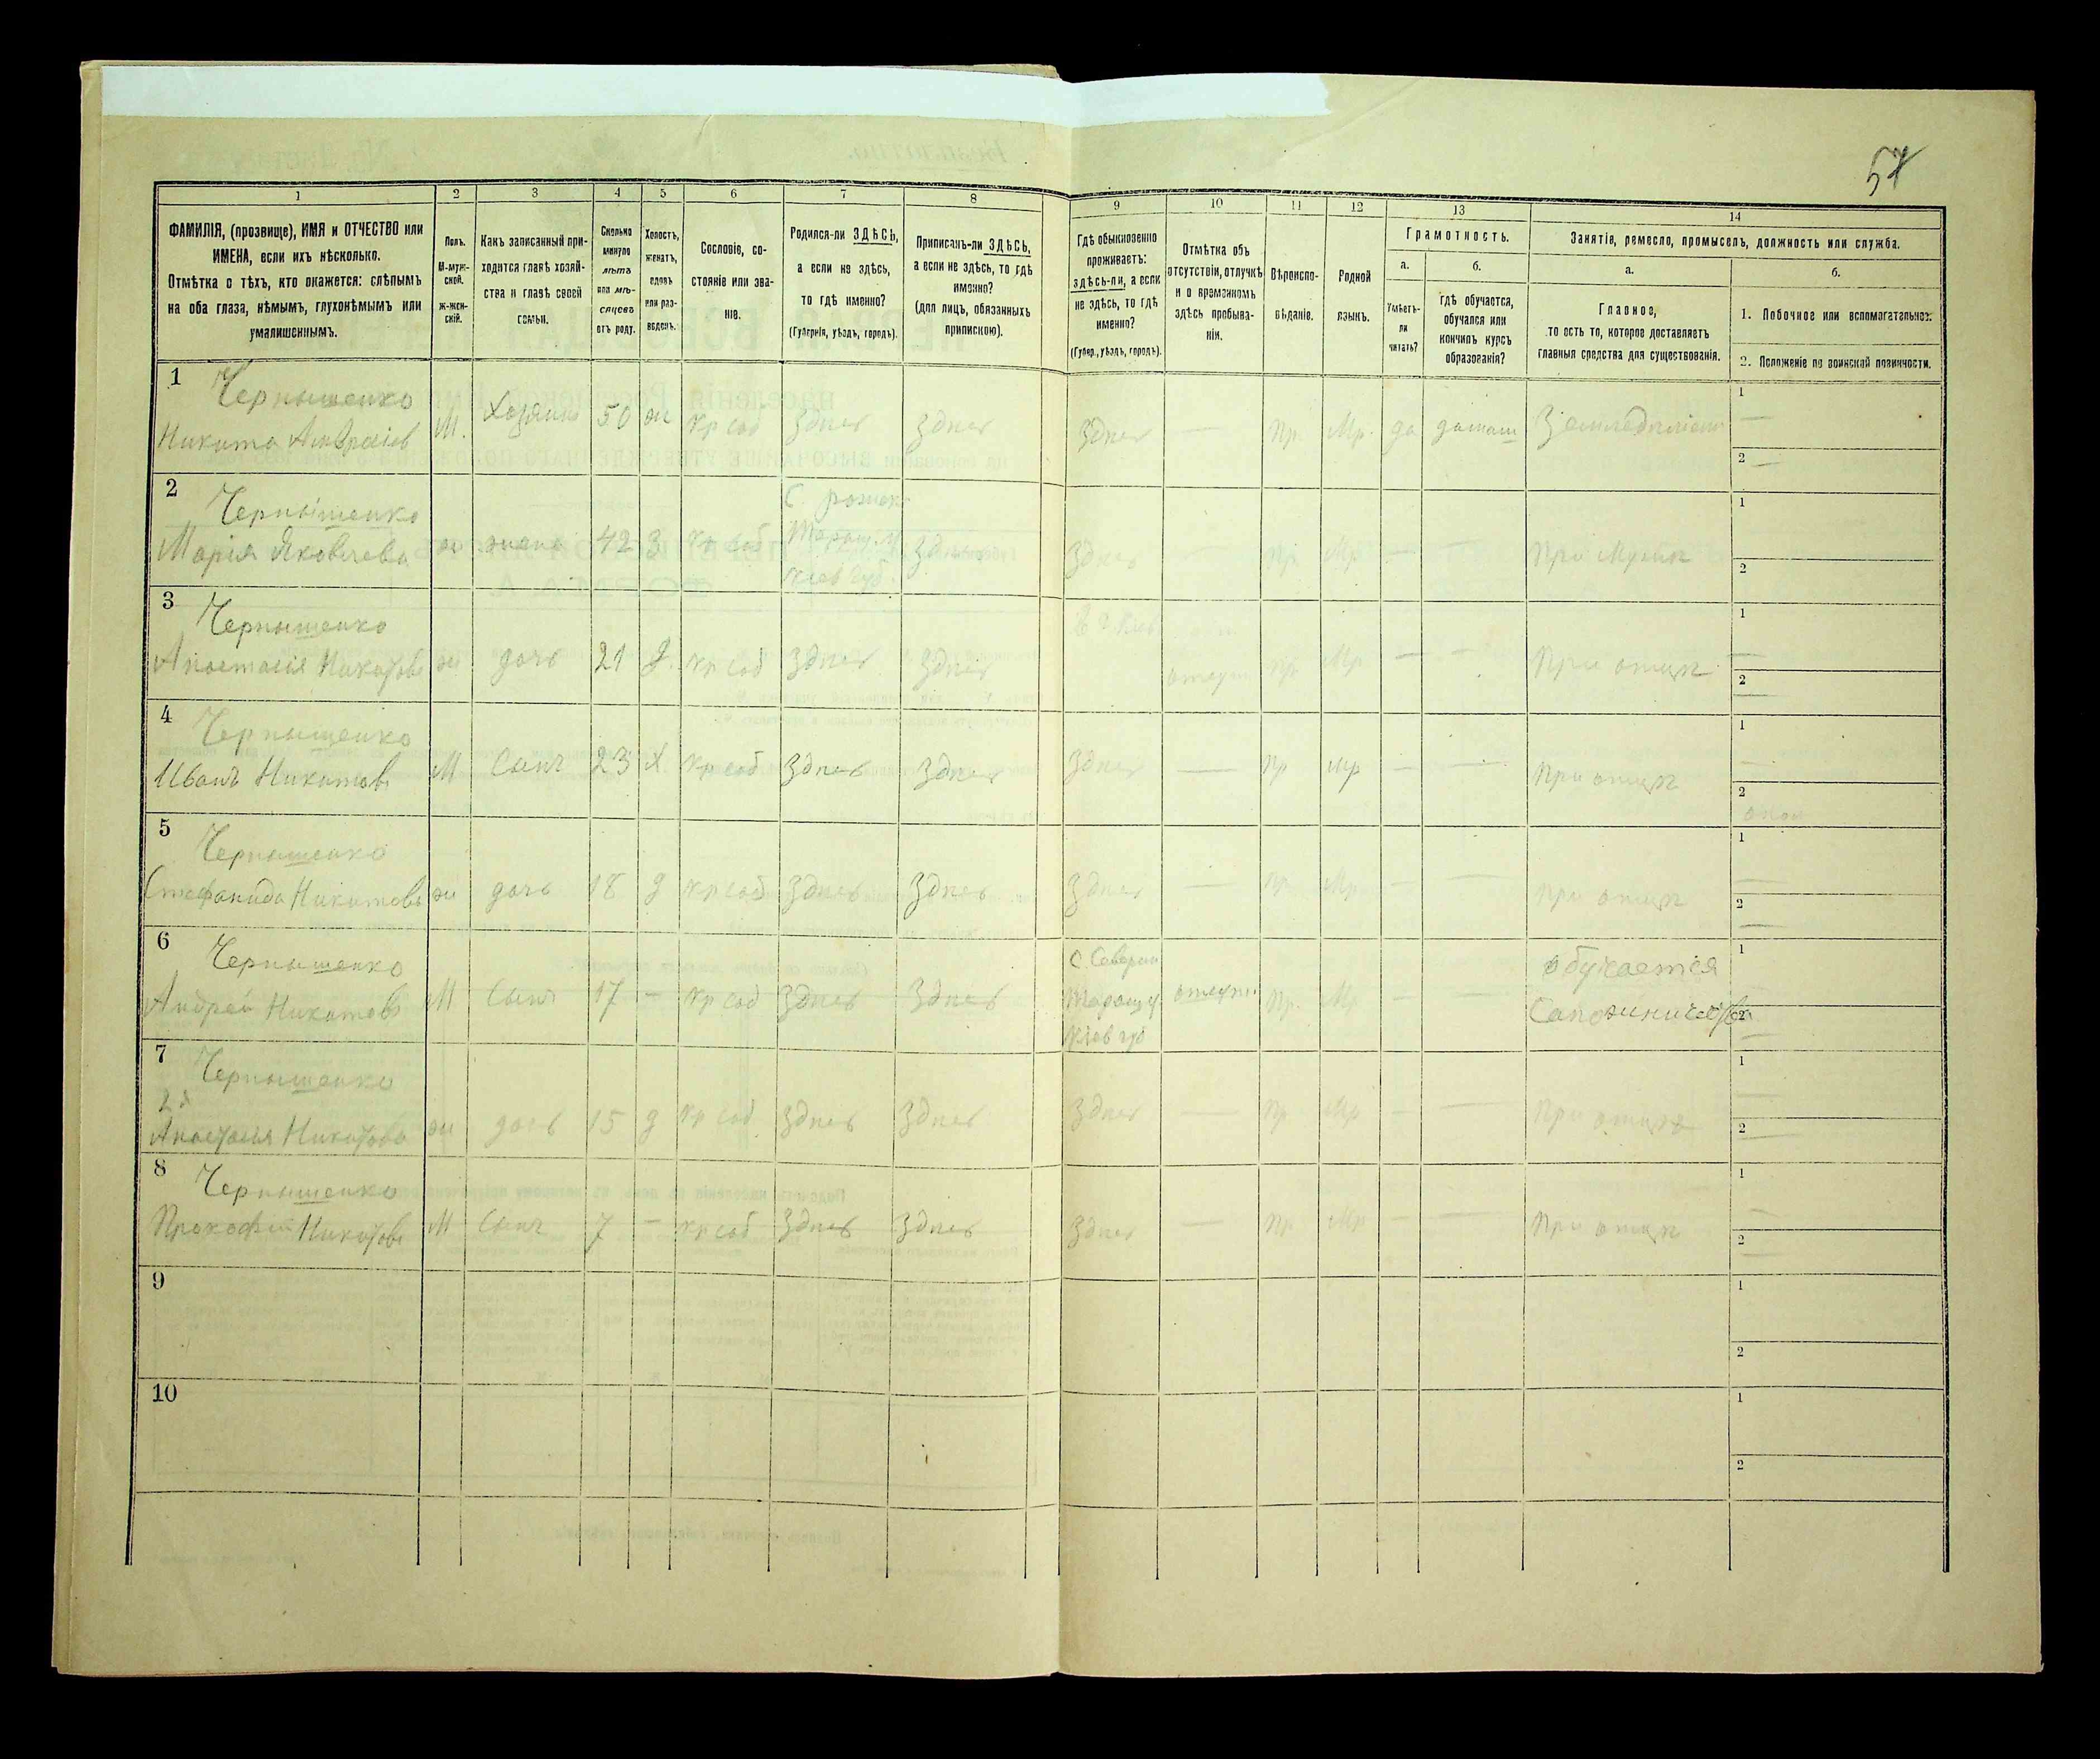 57
1
2
3
4
5
6
7
8
9
10
11
12
13
14
ФАМИЛІЯ, (прозвище), ИМЯ и ОТЧЕСТВО или
ИМЕНА, если ихъ нѣсколько.
Отмѣтка о тѣхъ, кто окажется: слѣпымъ
на оба глаза, нѣмымъ, глухонѣмымъ или
умалишеннымъ.
Полъ.
М-муж-
ской.
Ж-жен-
скій.
Какъ записанный при-
ходится главѣ хозяй-
ства и главѣ своей
семьи.
Сколько
минуло
лѣтъ
или мѣ-
сяцевъ
отъ роду.
Холостъ,
женатъ,
вдовъ
или раз-
веденъ.
Сословіе, со-
стояніе или зва-
ніе.
Родился-ли ЗДѢСЬ,
а если не здѣсь,
то гдѣ именно?
(Губернія, уѣздъ, городъ).
Приписанъ-ли ЗДѢСЬ,
а если не здѣсь, то гдѣ
именно?
(для лицъ, обязанныхъ
припискою).
Гдѣ обыкновенно
проживаетъ:
здѣсь-ли, а если
не здѣсь, то гдѣ
именно?
(Губер., уѣздъ, городъ).
Отмѣтка объ
отсутствіи, отлучкѣ
и о временномъ
здѣсь пребыва-
ніи.
Вѣроиспо-
вѣданіе.
Родной
языкъ.
Грамотность.
а.
Умѣетъ-
ли
читать?
б.
Гдѣ обучается,
обучался или
кончилъ курсъ
образованія?
Занятіе, ремесло, промыселъ, должность или служба.
а.
Главное,
то есть то, которое доставляетъ
главныя средства для существованія.
б.
1. Побочное или вспомогательное.
2. Положеніе по воинской повинности.
1 Чернышенко
Никита М. Хозяинъ 50 ж кр соб Здѣсь Здѣсь Здѣсь — Пр. Мр. да Земледѣліе 1 — 2 —
2 Чернышенко
Марія Яковлева ж жена 42 З кр соб Таращ. у Кіев губ. Здѣсь Здѣсь — Пр Мр — — При мужѣ 1 2
3 Чернышенко
Анастасія Никитова ж дочь 21 д. кр соб Здѣсь Здѣсь Пр Мр — — При отцѣ 1 — 2 —
4 Чернышенко
Иванъ Никитовъ М Сынъ 23 Х кр соб Здѣсь Здѣсь Здѣсь — Пр Мр — — При отцѣ 1 — 2
5 Чернышенко
Стефанида Никитова ж дочь 18 д кр соб Здѣсь Здѣсь Здѣсь — Пр. Мр — — При отцѣ 1 — 2 —
6 Чернышенко
Андрей Никитовъ М Сынъ 17 — кр соб Здѣсь Здѣсь Таращ у Кіев губ Пр. Мр — — обучается 1 — 2 —
7 Чернышенко
2я
Анастасія Никитова ж дочь 15 д кр соб Здѣсь Здѣсь Здѣсь — Пр. Мр — — При отцѣ 1 — 2 —
8 Чернышенко
Прокофій Никитовъ М Сынъ 7 — кр соб Здѣсь Здѣсь Здѣсь — Пр Мр — — При отцѣ 1 — 2 —
9 1 2
10 1 2